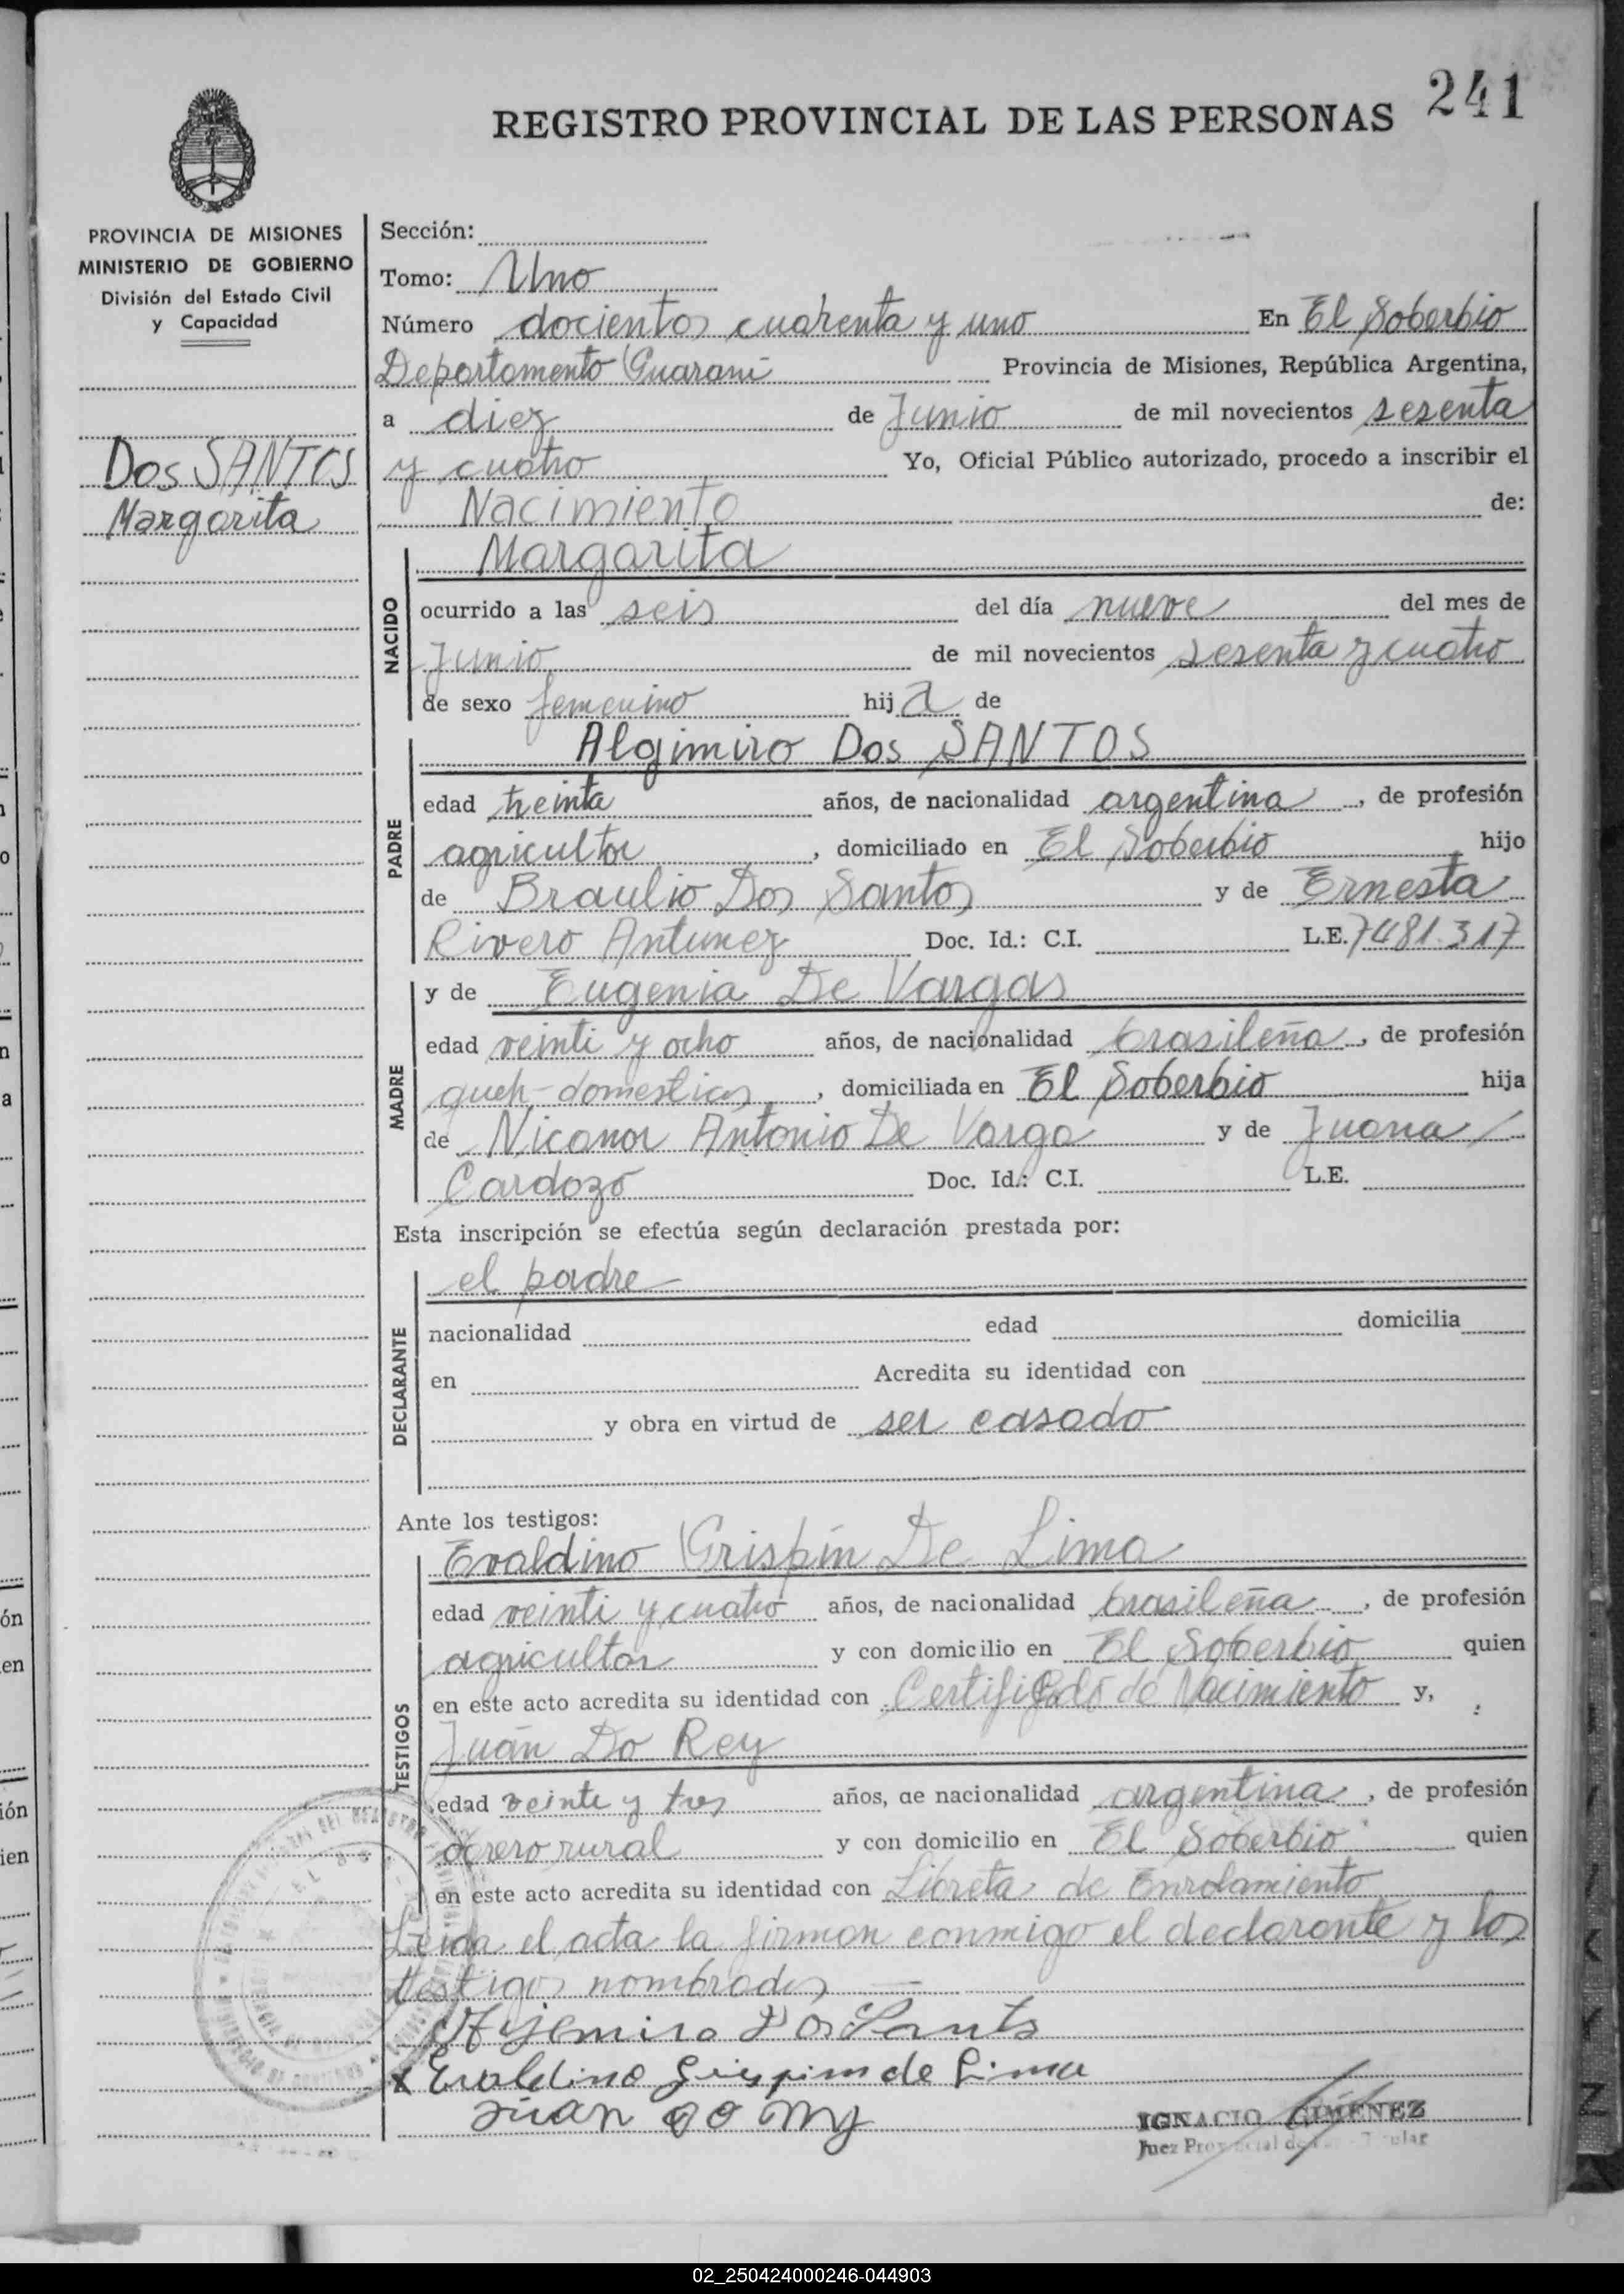 REGISTRO PROVINCIAL DE LAS PERSONAS 241
PROVINCIA DE MISIONES
MINISTERIO DE GOBIERNO
División del Estado Civil
y Capacidad
Dos SANTOS
Margarita
Sección:
Tomo: Uno
Número docientos cuarenta y uno En El Soberbio
Departamento Guarani Provincia de Misiones, República Argentina,
a diez de Junio de mil novecientos sesenta
y cuatro Yo, Oficial Público autorizado, procedo a inscribir el
Nacimiento de:
NACIDO
Margarita
ocurrido a las seis del día nueve del mes de
Junio de mil novecientos sesenta y cuatro
de sexo femenino hija de
PADRE
Algimiro Dos SANTOS
edad treinta años, de nacionalidad argentina, de profesión
agricultor, domiciliado en El Soberbio hijo
de Braulio Dos Santos y de Ernesta
Rivero Antunez Doc. Id.: C.I. L.E. 7481.317
MADRE
y de Eugenia De Vargas
edad veinti y ocho años, de nacionalidad brasileña, de profesión
queh-domesticos, domiciliada en El Soberbio hija
de Nicanor Antonio De Varga y de Juana
Cardozo Doc. Id.: C.I. L.E.
Esta inscripción se efectúa según declaración prestada por:
DECLARANTE
el padre
nacionalidad edad domicilia
en Acredita su identidad con
y obra en virtud de ser casado
Ante los testigos:
TESTIGOS
Evaldino Crispín De Lima
edad veinti y cuatro años, de nacionalidad brasileña, de profesión
agricultor y con domicilio en El Soberbio quien
en este acto acredita su identidad con Certificado de Nacimiento y,
Juan Do Rey
edad veinte y tres años, de nacionalidad argentina, de profesión
obrero rural y con domicilio en El Soberbio quien
en este acto acredita su identidad con Libreta de Enrolamiento
Leida el acta la firman conmigo el declarante y los
testigos nombrados
Dos Santos
x Evaldino de Lima
Juan do
IGNACIO GIMENEZ
Juez
02_250424000246-044903